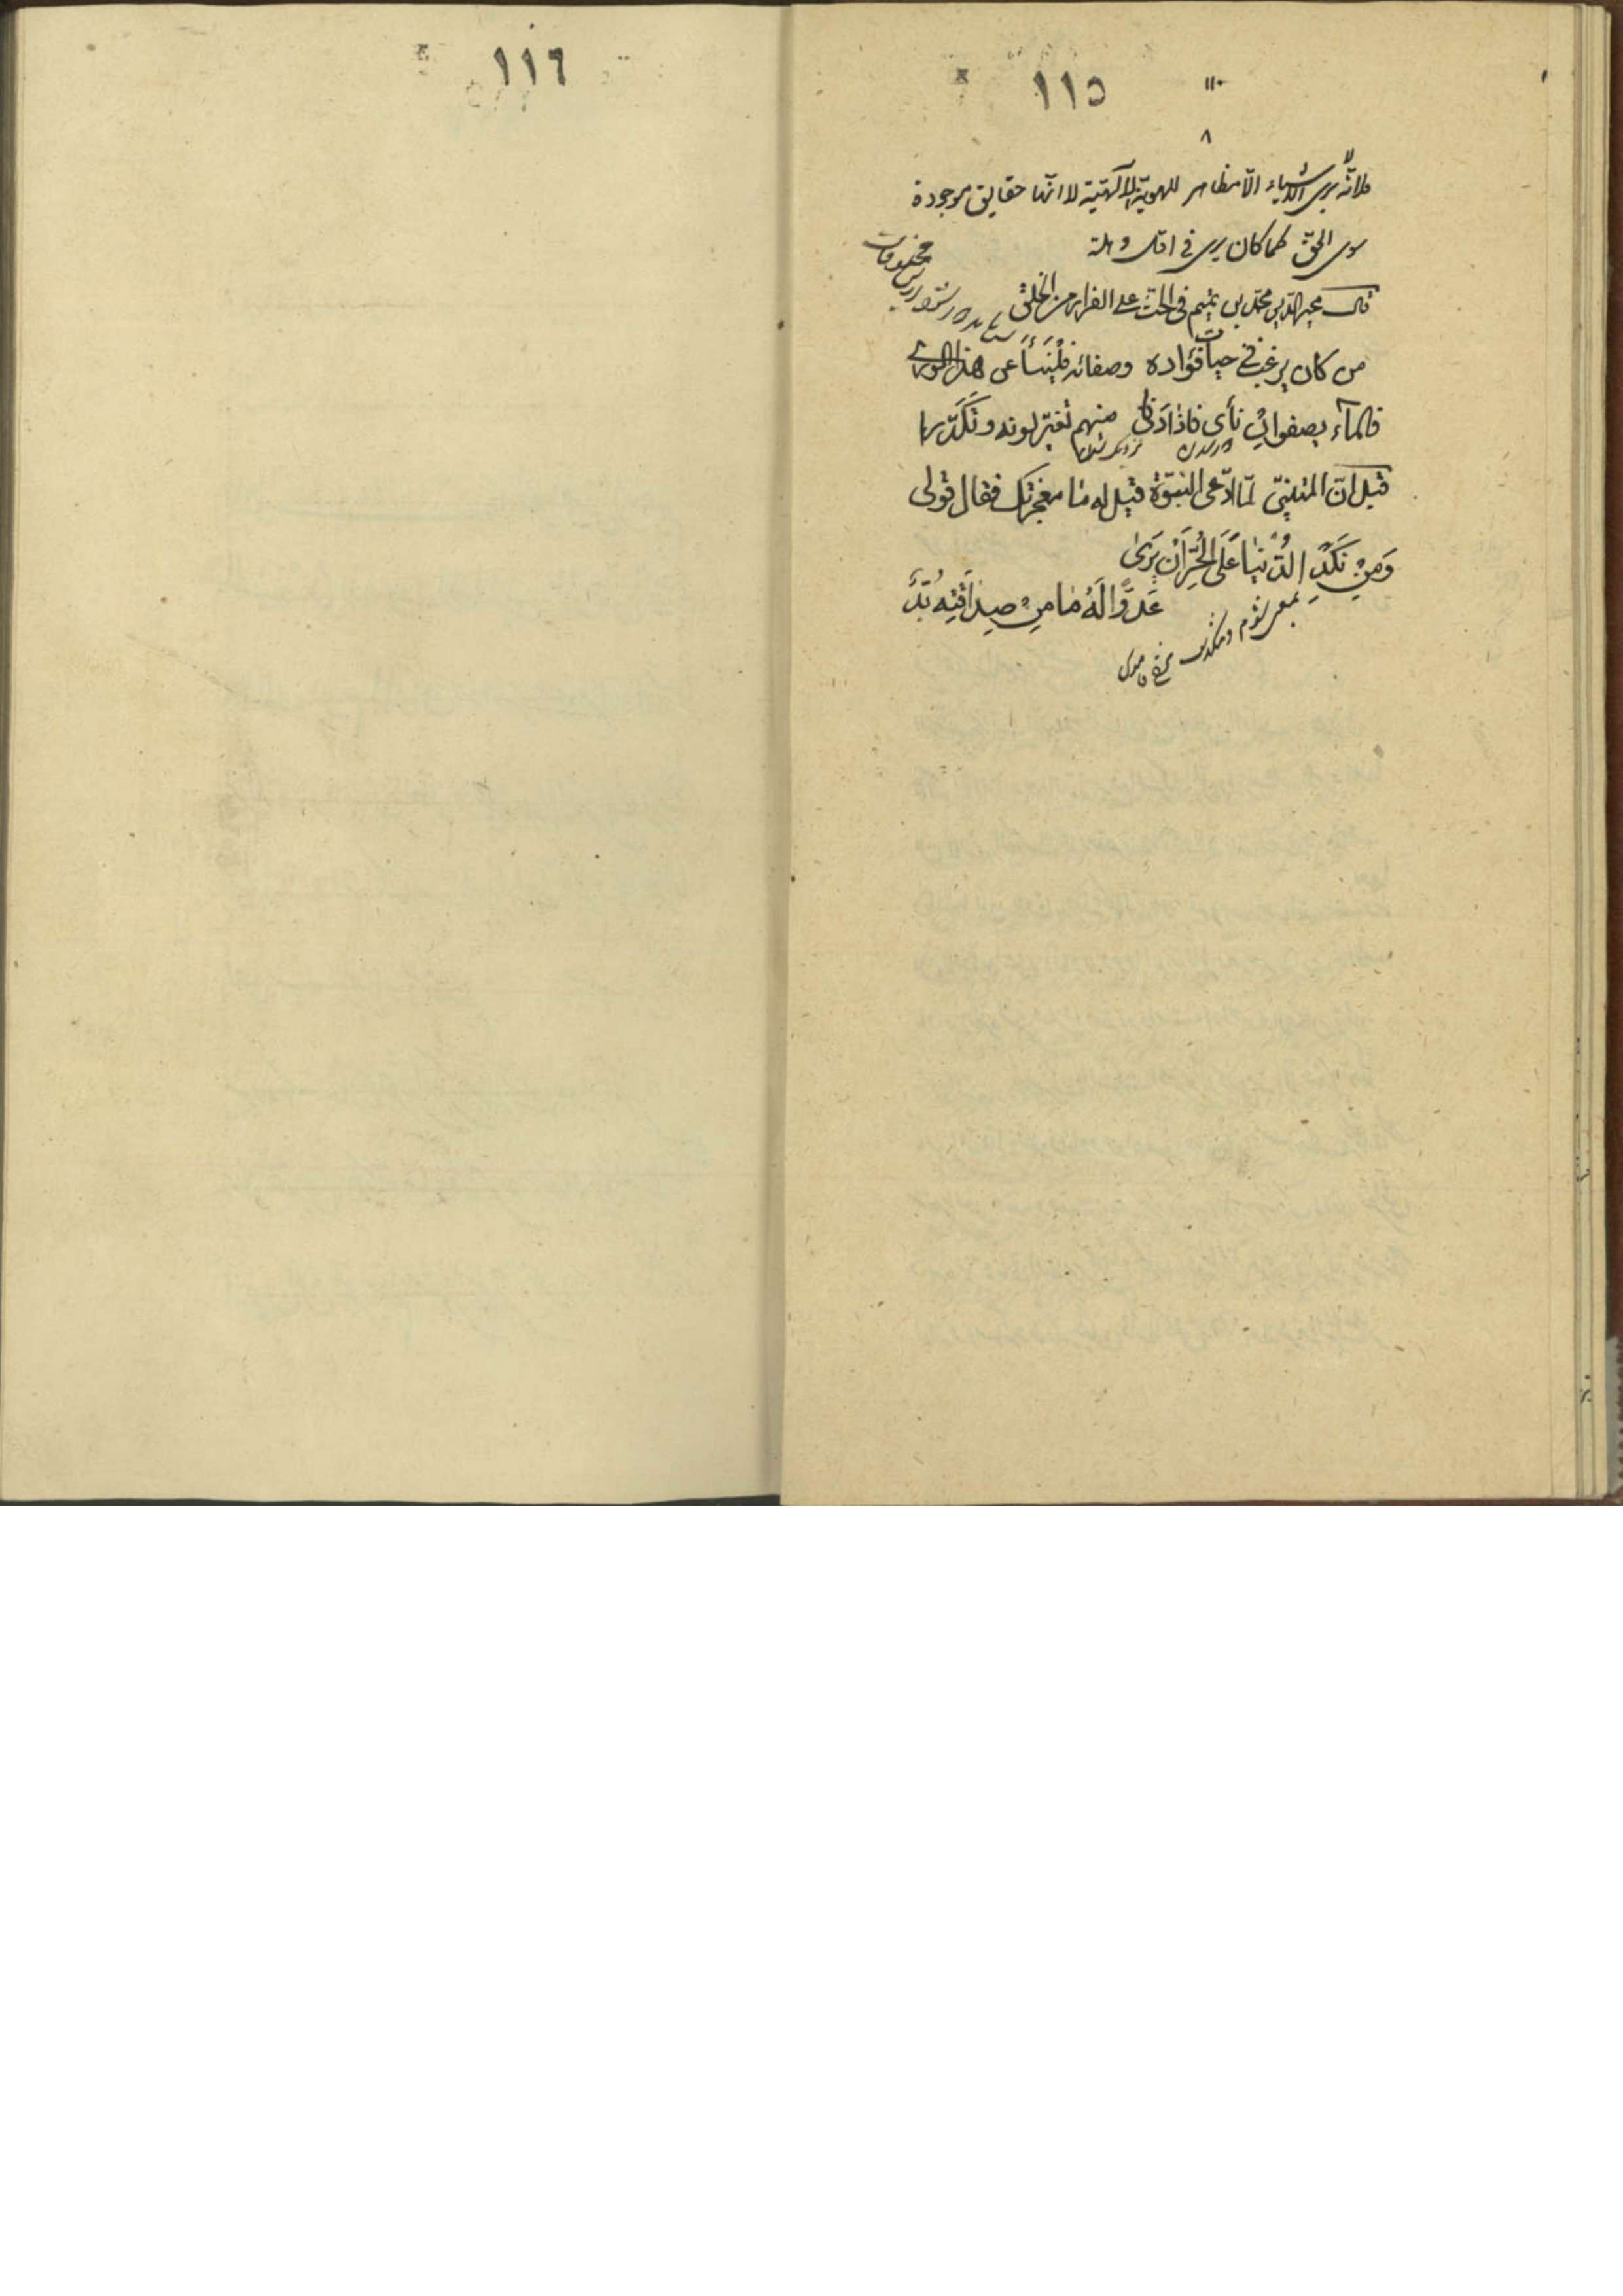 ١١٥
١١٠
٨
فلانه لا يرى الاشياء الّا مظاهر للهويّة الالٓهيّة لا انّها حقايق موجودة
سوى الحقّ كما كان يرى فى اوّل وهلة
قال مجير الدّين محمّد بن تميم فى الحثّ على الفرار من الخلق
مخلوقات
من كان يرغب فى حيات فؤاده وصفائه فَلْيَنْأَ عن هذا الورى
فالماء يصفو ان نأى فاذا دنا منهم تغيّر لونه وتَكَدَّرا
قيل انّ المتنبّى لمّا ادّعى النبوّة قيل له ما معجزتك فقال قولى
وَمِنْ نَكَدِ الدُّنْيَا عَلَى الْحُرِّ اَنْ يَرَىٰ
عَدُوًّا لَهُ مَا مِنْ صِدَاقَتِهِ بُدَّ
١١٦